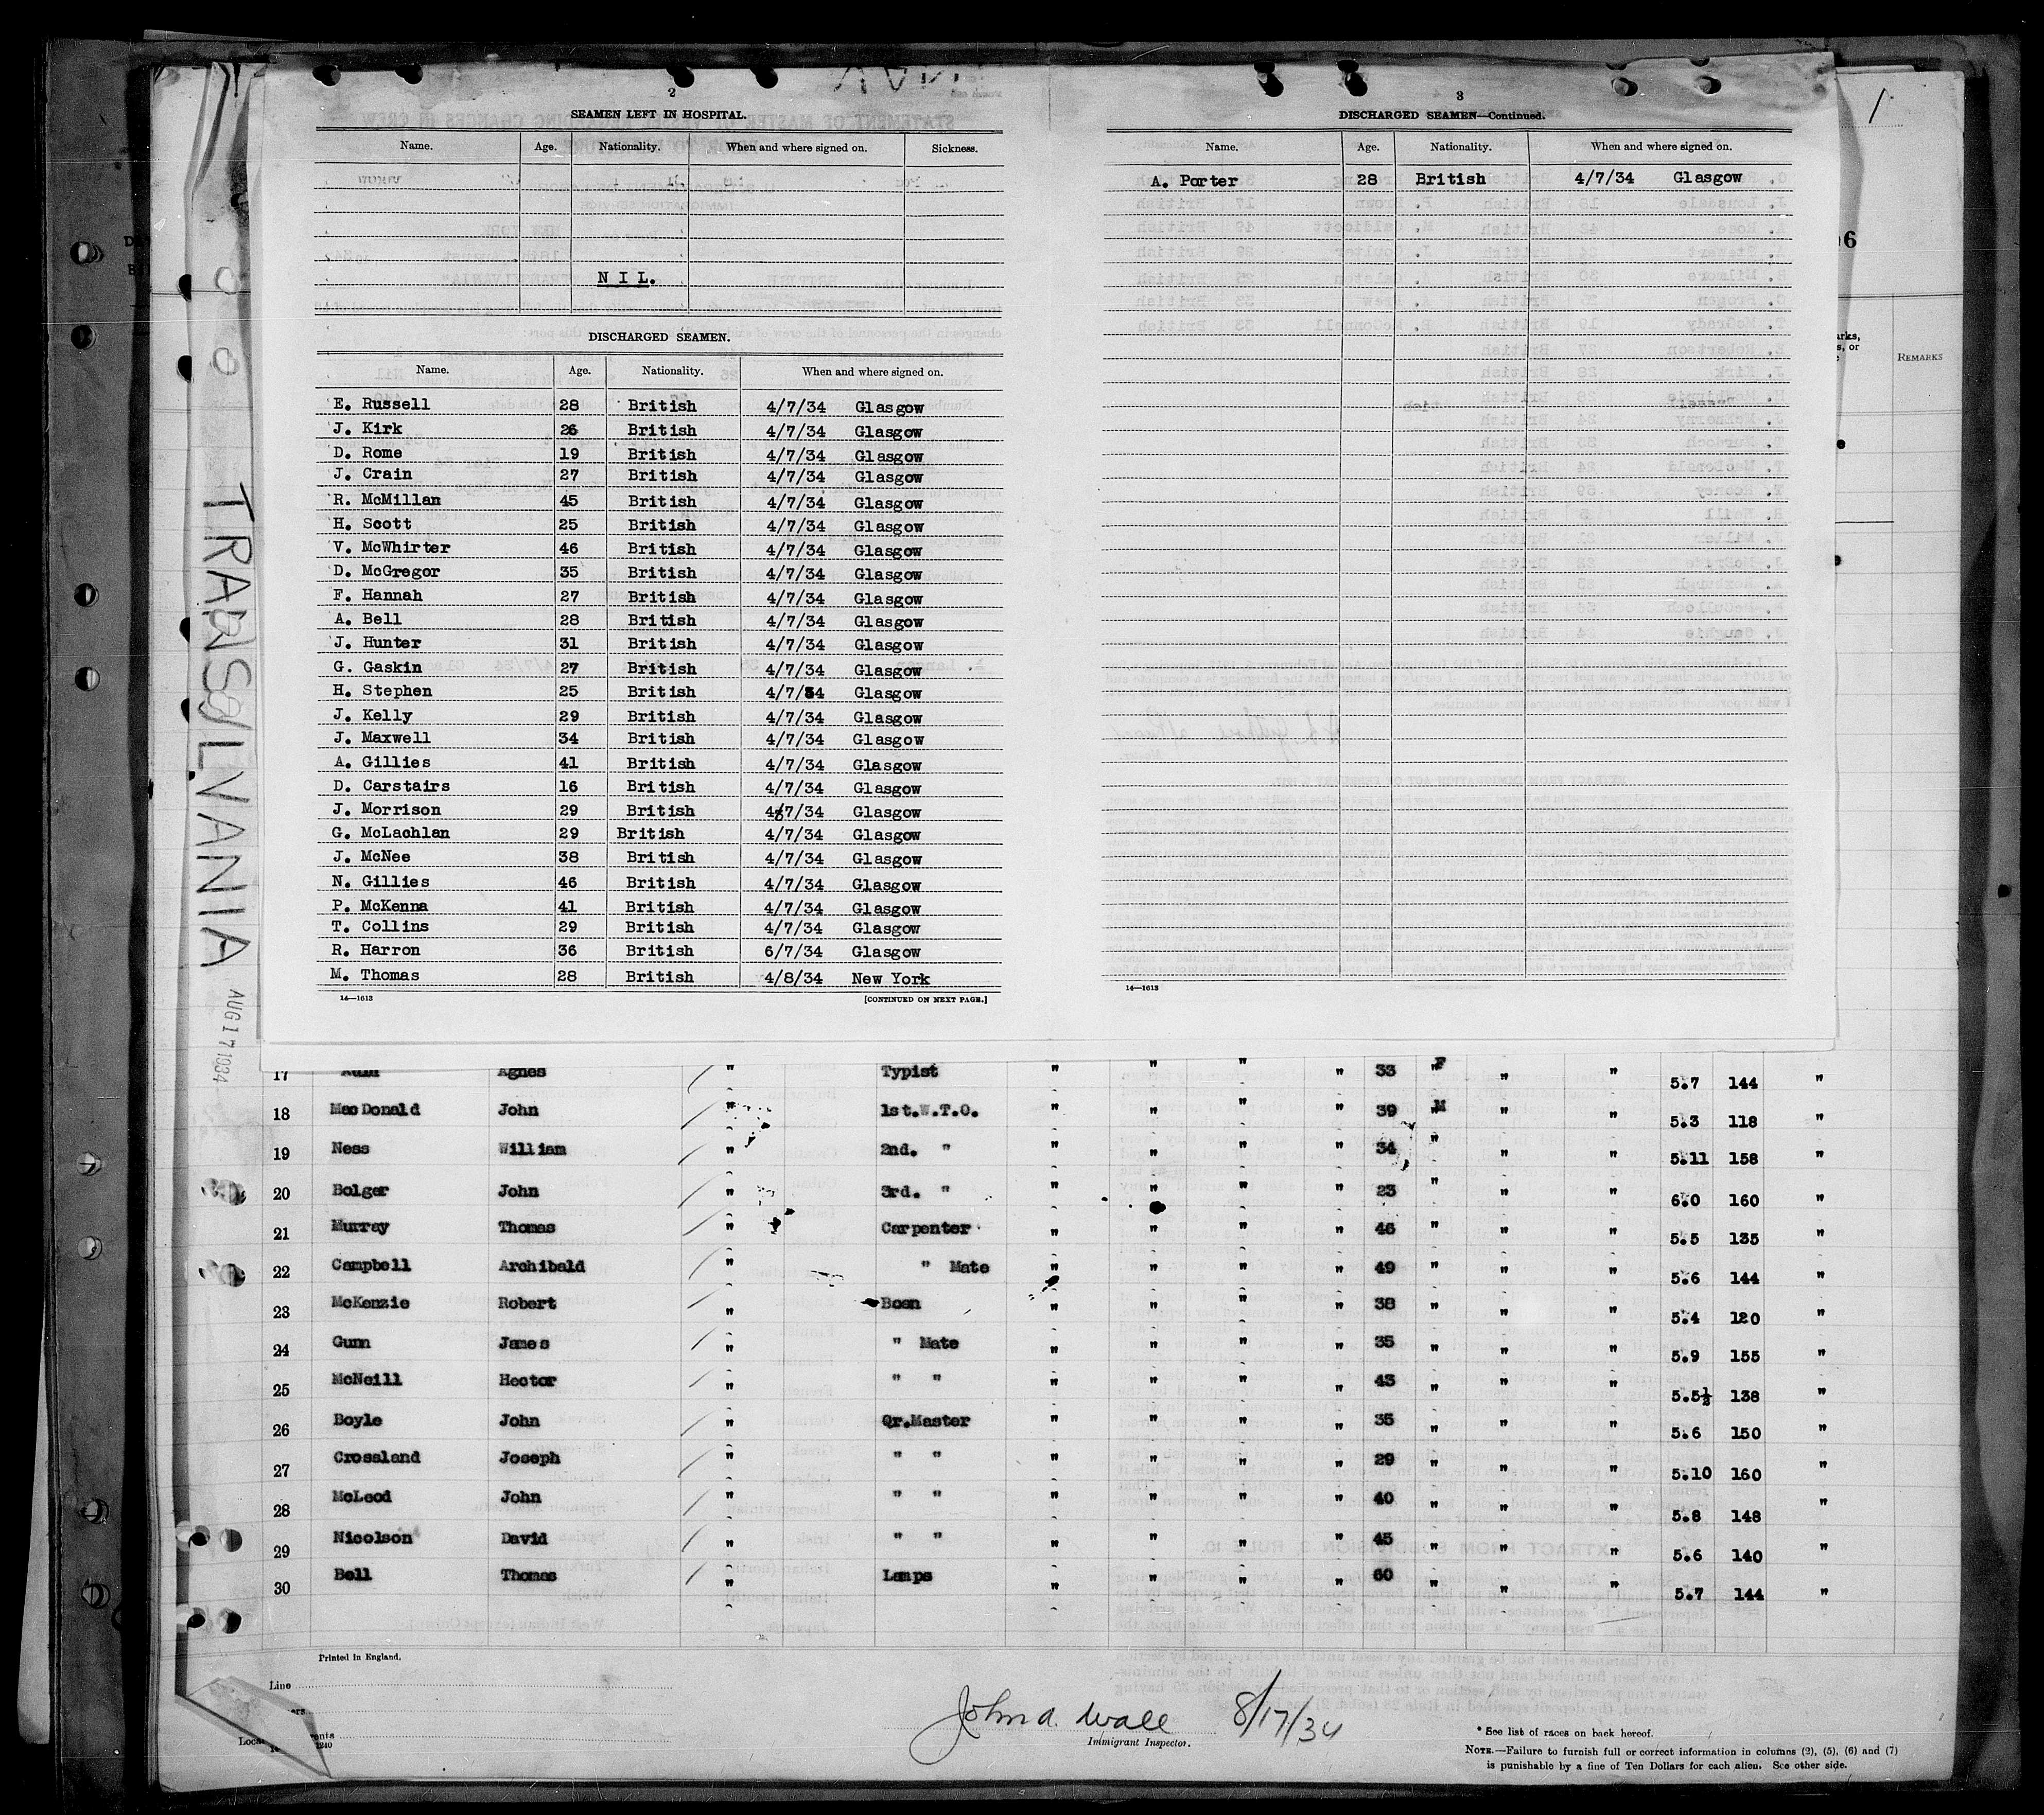 TRANSYLVANIA
AUG 17 1934
1
2
SEAMEN LEFT IN HOSPITAL.
Name. Age. Nationality. When and where signed on. Sickness.
NIL.
DISCHARGED SEAMEN.
Name. Age. Nationality. When and where signed on.
E. Russell 28 British 4/7/34 Glasgow
J. Kirk 26 British 4/7/34 Glasgow
D. Rome 19 British 4/7/34 Glasgow
J. Crain 27 British 4/7/34 Glasgow
R. McMillan 45 British 4/7/34 Glasgow
H. Scott 25 British 4/7/34 Glasgow
V. McWhirter 46 British 4/7/34 Glasgow
D. McGregor 35 British 4/7/34 Glasgow
F. Hannah 27 British 4/7/34 Glasgow
A. Bell 28 British 4/7/34 Glasgow
J. Hunter 31 British 4/7/34 Glasgow
G. Gaskin 27 British 4/7/34 Glasgow
H. Stephen 25 British 4/7/34 Glasgow
J. Kelly 29 British 4/7/34 Glasgow
J. Maxwell 34 British 4/7/34 Glasgow
A. Gillies 41 British 4/7/34 Glasgow
D. Carstairs 16 British 4/7/34 Glasgow
J. Morrison 29 British 4/7/34 Glasgow
G. McLachlan 29 British 4/7/34 Glasgow
J. McNee 38 British 4/7/34 Glasgow
N. Gillies 46 British 4/7/34 Glasgow
P. McKenna 41 British 4/7/34 Glasgow
T. Collins 29 British 4/7/34 Glasgow
R. Harron 36 British 6/7/34 Glasgow
M. Thomas 28 British 4/8/34 New York
14—1613 [CONTINUED ON NEXT PAGE.]
3
DISCHARGED SEAMEN—Continued.
Name. Age. Nationality. When and where signed on.
A. Porter 28 British 4/7/34 Glasgow
14—1613
REMARKS
17 Agnes " Typist " " " " 33 F " " 5.7 144 "
18 MacDonald John " 1st.W.T.O. " " " " 39 M " " 5.3 118 "
19 Ness William " 2nd. " " " " " 34 " " " 5.11 158 "
20 Bolger John " 3rd. " " " " " 23 " " " 6.0 160 "
21 Murray Thomas " Carpenter " " " " 46 " " " 5.5 135 "
22 Campbell Archibald " " Mate " " " " 49 " " " 5.6 144 "
23 McKenzie Robert " Bosn " " " " 38 " " " 5.4 120 "
24 Gunn James " " Mate " " " " 35 " " " 5.9 155 "
25 McNeill Hector " " " " " " " 43 " " " 5.5½ 138 "
26 Boyle John " Qr.Master " " " " 35 " " " 5.6 150 "
27 Crossland Joseph " " " " " " " 29 " " " 5.10 160 "
28 McLeod John " " " " " " " 40 " " " 5.8 148 "
29 Nicolson David " " " " " " " 45 " " " 5.6 140 "
30 Bell Thomas " Lamps " " " " 60 " " " 5.7 144 "
Printed in England.
Line
John A. Wall 8/17/34
Immigrant Inspector.
* See list of races on back hereof.
NOTE.—Failure to furnish full or correct information in columns (2), (5), (6) and (7)
is punishable by a fine of Ten Dollars for each alien. See other side.